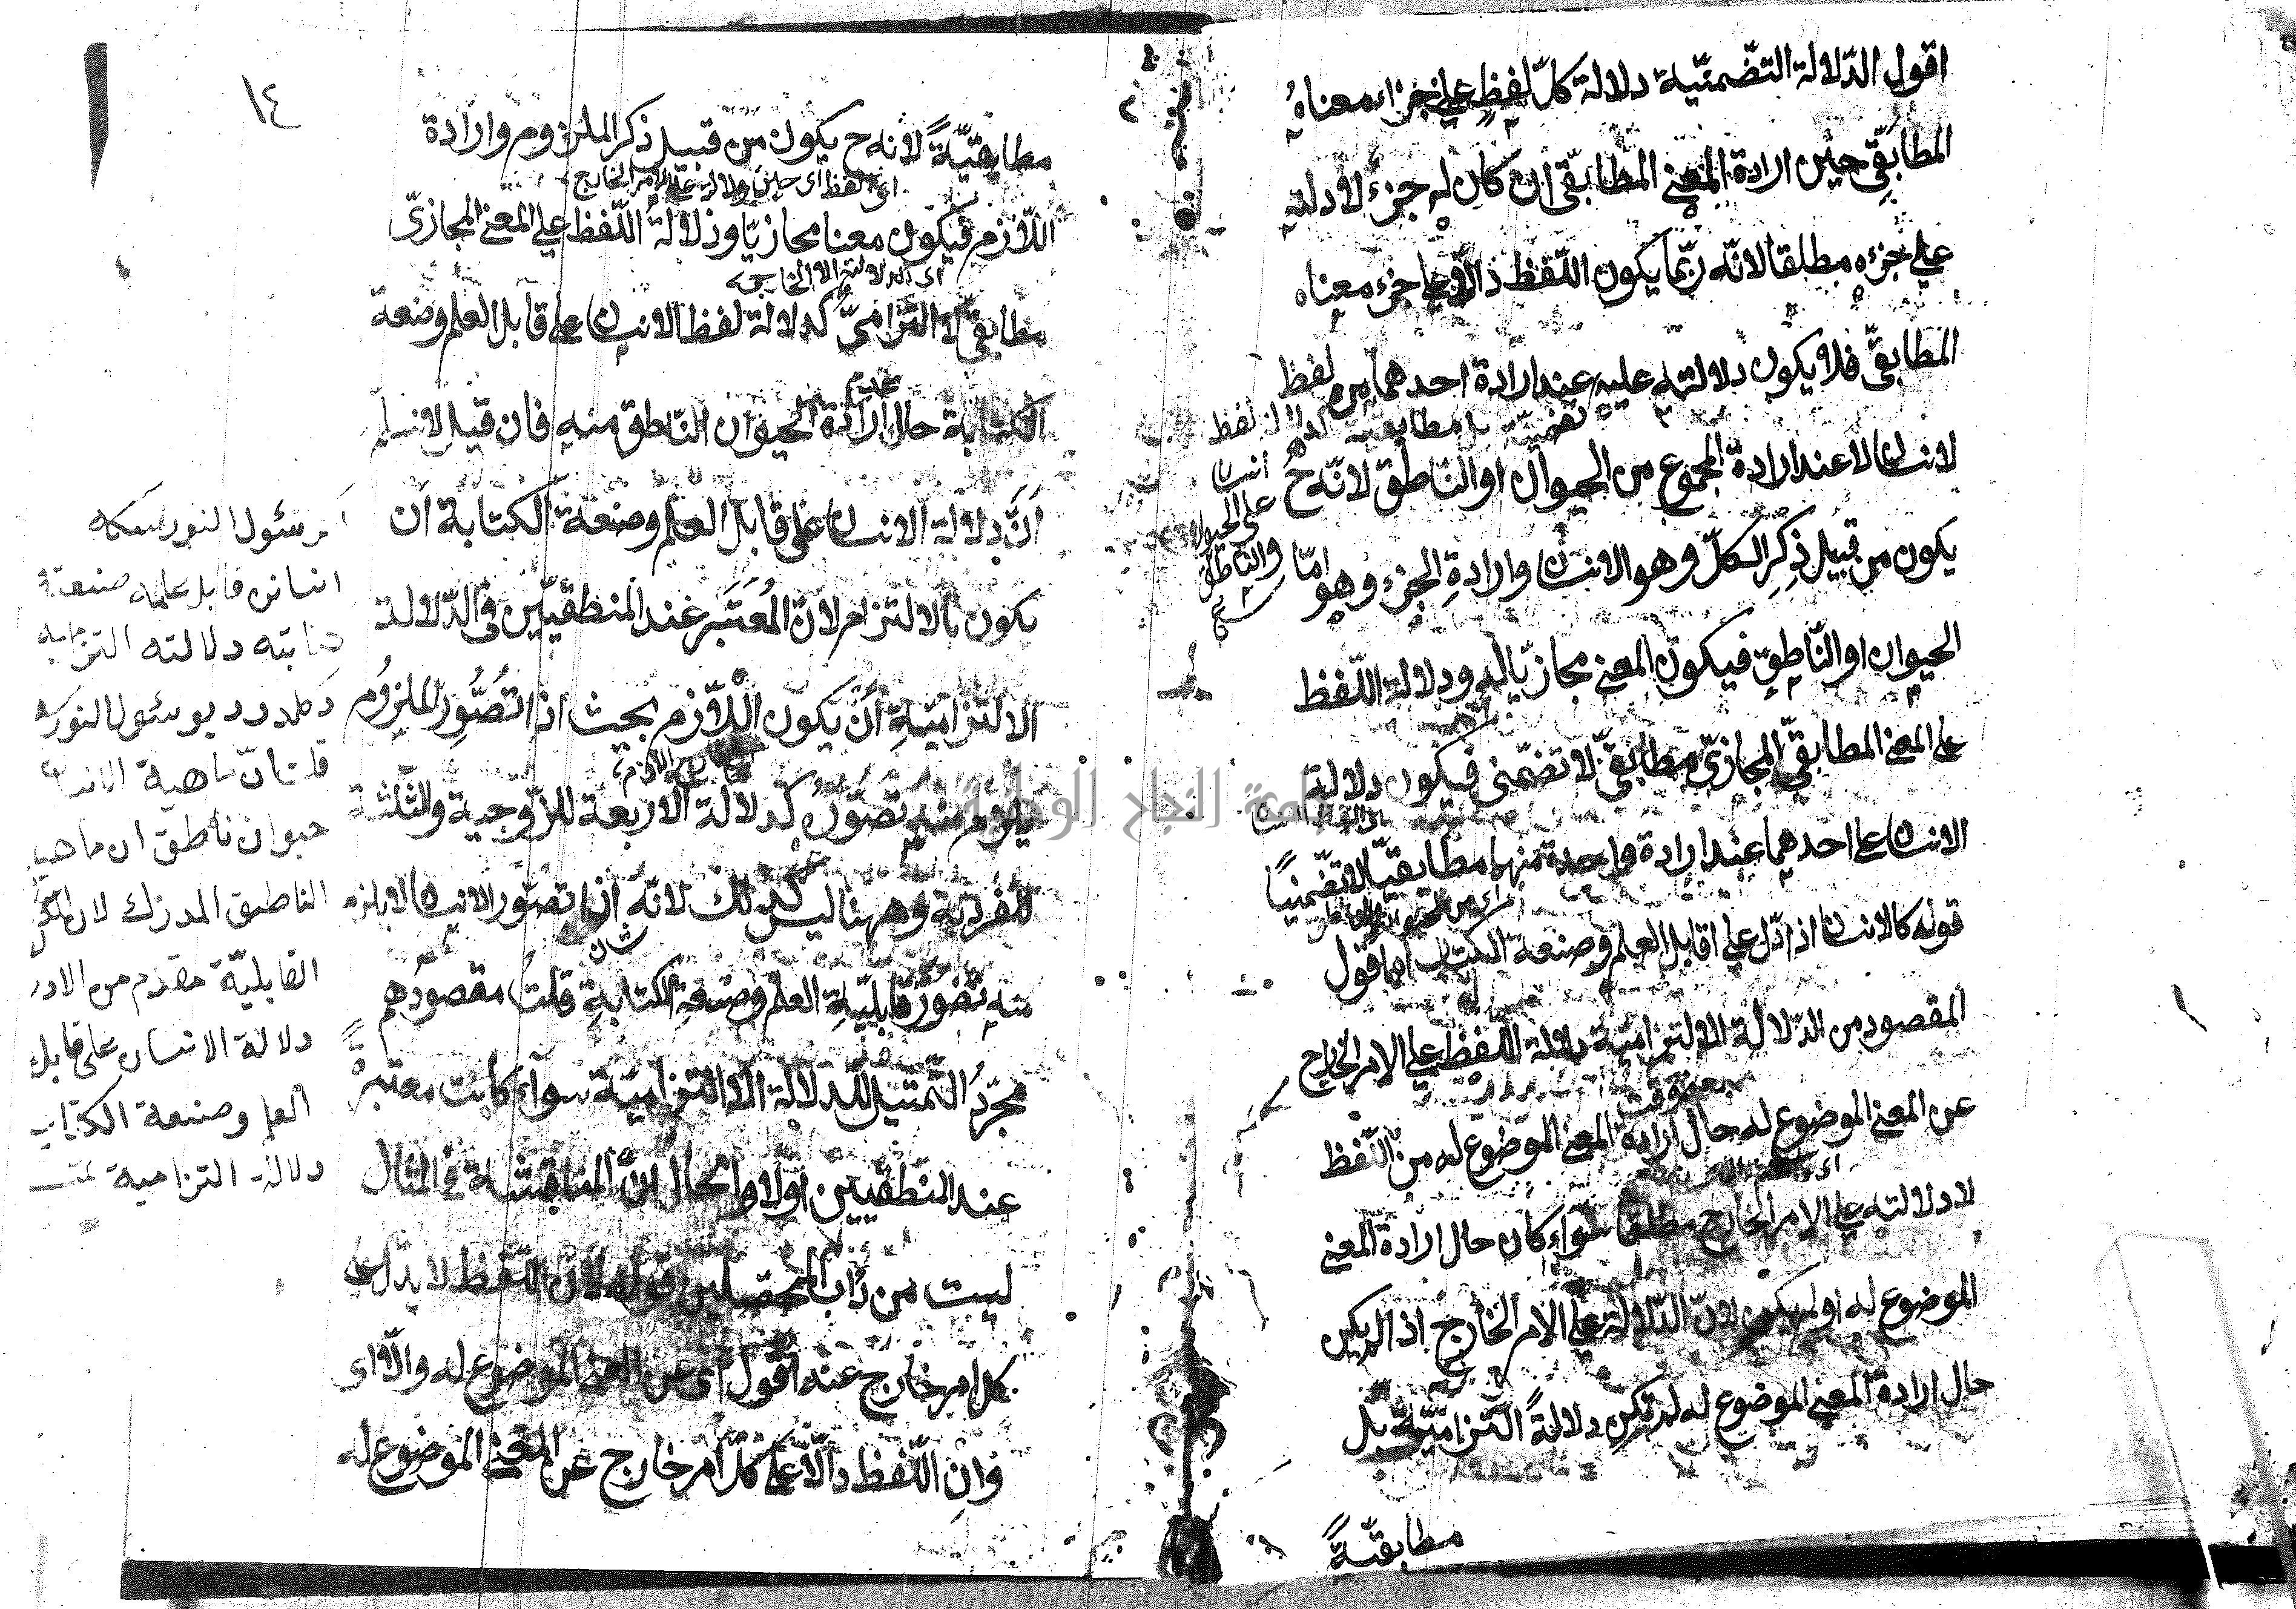 اقول الدّلالة التضّمنيّة دلالة كلّ لفظ علي جزاء معناهُ
المطابَقِّي حين ارادة المعني المطابقّى ان كان له جزء لا دلته
علي جزءه مطلقا لانّه ربّما يكون اللّفظ دالّا علي جزء معناه
المطابقّى فلا يكون دلالته عليه عند ارادة احدهما من لفظ
تضمنيّة بل مطابقية
لانسان لا عند ارادة المجموع من الحيوان او النّاطق لانّه ح
يكون من قبيل ذِكِر الكلّ وهو الانسان وارادةِ الجزء وهو امّا
الحيوان او النّاطق فيكون المعني مجازيّا له ودلالة اللّفظ
على المعني المطابقّي المجازىّ مطابقىّ لا تضمّنى فيكون دلالة
الانسان علي احدهما عند ارادة واحدة منهما مطابقيّا لا تضّمنيّاً
قوله كالانسان اذا دّل علي قابل العلم وصنعة الكتابة اقول
المقصود من الدّلالة الالتزاميّة دلالة اللّفظ علي الامر الخارج
عن المعني الموضوع له حال ارادة المعني الموضوع له من اللّفظ
لا دلالته علي الامر الخارج مطلقا سواء كان حال ارادة المعني
الموضوع له اولم يكن لانّ الدّلالة علي الامر الخارج اذا لم يكن
حال ارادة المعني الموضوع له لم تكن دلالةً التزاميّة بل
مطابقيّةً
١٤
مطابقيّةً لانه ح يكون من قبيل ذكر الملزوم وارادة
اى اللفظ اى حين دلالته علي الامر الخارج
اللّازم فيكون معنا مجازيّا ودلالة اللّفظ علي المعني المجازىّ
مطابقىّ لا التزامىّ كدلالة لفظ الانسان علي قابل العلم وصنعة
عدم
الكتابة حال ارادة الحيوان النّاطق منه فان قيل لا نسلم
أنّ دلالة الانسان علي قابل العلم وصنعة الكتابة ان
يكون بالالتزام لانّ المُعتَبَر عند المنطقيّين في الدّلالة
الالتزاميّةِ أنْ يكون اللّازم بحيث اذا تُصُّوِر الملزوُم
يلزم منه تصّوره كدلالة الاربعة للزّوجية والثّلثة
للفرديّة وههنا ليس كذلك لانّه اذا تصّور الانسان لا يلزم
منه تصّورُ قابليّةِ العلم وصنعةِ الكتابةِ قلتُ مقصودُهم
مجرّدُ التّمثيل للدّلالة الالتزاميّة سوآء كانت معتبرةً
عند المنطقيين اولا والحال انّ المناقشة في المثال
ليست من دأب المحصّلين قوله لانّ اللّفظ لا يدلّ علي
كل امر خارج عنه اقول اى عن المعني الموضوع له والّا اى
وانِ اللّفظ دالّا علي كلّ امر خارج عن المعني الموضوع له
انسانن قابل علمه صنعة
كتابته دلالته التزاميه
قلت انّ ماهية الانسان
حيوان ناطق ان ماهية
الناطق المدرك لان
القابليّة مقدم من الادر
دلالة الانسان على قابل
العلم وصنعة الكتاب
دلالة التزامية تمت
جامعة النجاح الوطنية